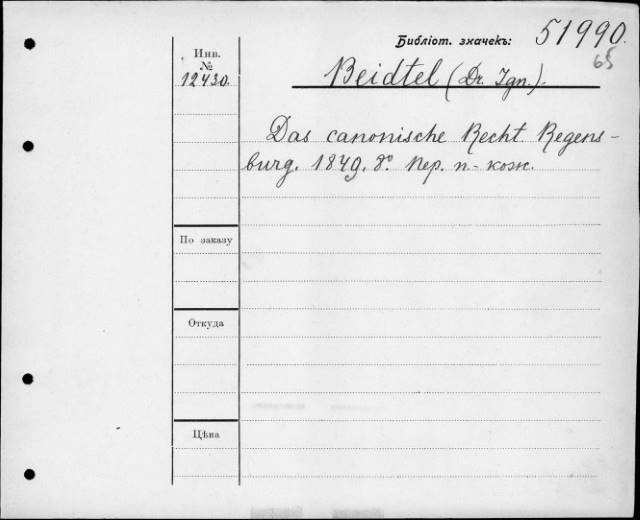 Библіот. значекъ: 51990.
65
Инв.
№
12430.
Beidtel (Dr. Ign.).
Das canonische Recht. Regens-
burg. 1849. 8º. Пер. п.-кож.
По заказу
Откуда
Цѣна